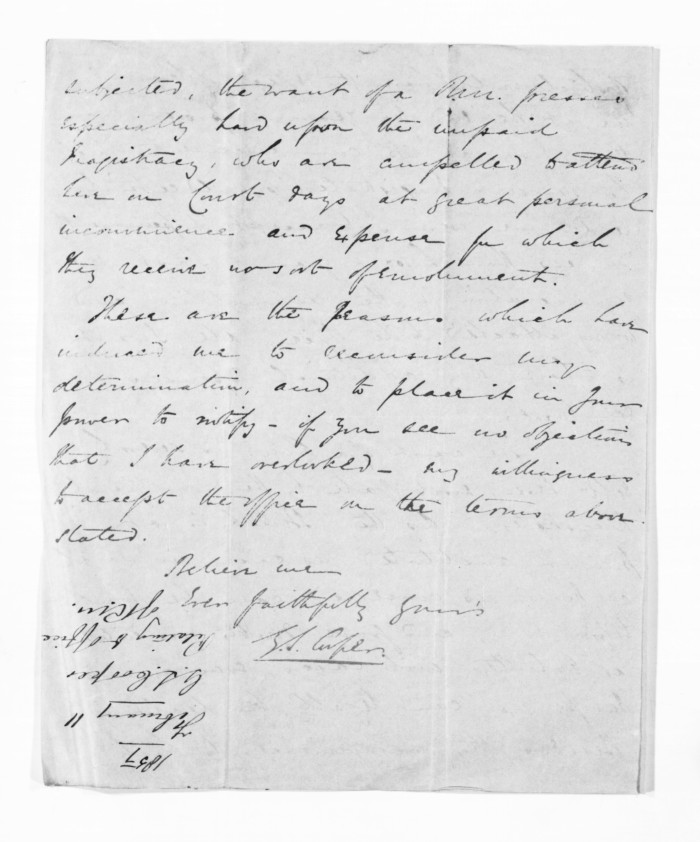 subjected, the want of a R.M. presses
especially hard upon the unpaid
Magistracy, who are compelled to attend
here on Court days at great personal
inconvenience and Expense for which
they receive no sort of emolument.
These are the Reasons which have
induced me to reconsider my
determination, and to place it in Your
power to notify - if you see no objections
that I have overlooked - my willingness
to accept the office on the terms above
stated.
Believe me
Ever faithfully Yours
G.S. Cooper.
1857
February 11
G.S. Cooper
Relating to Office
of R.M.